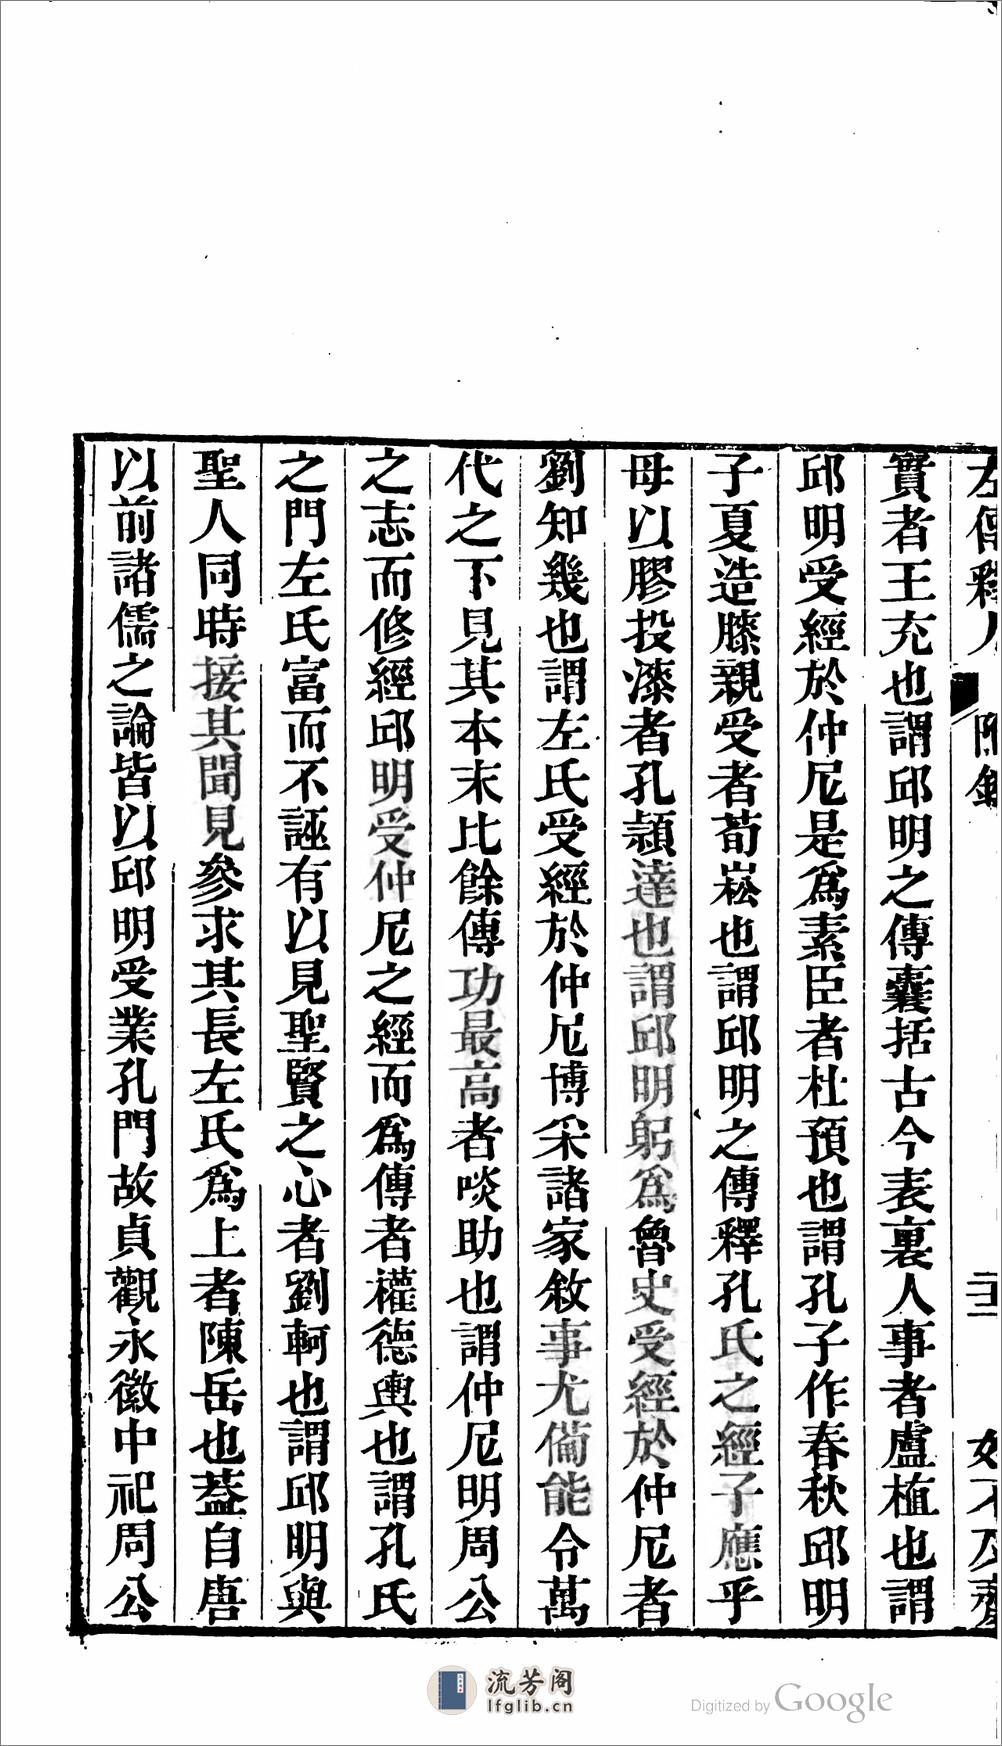 左傳釋人 附錄 二十一 如不及齋
實者王充也謂邱明之傳囊括古今表裏人事者盧植也謂
邱明受經於仲尼是爲素臣者杜預也謂孔子作春秋邱明
子夏造膝親受者荀崧也謂邱明之傳釋孔氏之經子應乎
母以膠投漆者孔頴達也謂邱明躬爲魯史受經於仲尼者
劉知幾也謂左氏受經於仲尼博采諸家敘事尤備能令萬
代之下見其本末比餘傳功最高者啖助也謂仲尼明周公
之志而修經邱明受仲尼之經而爲傳者權德輿也謂孔氏
之門左氏富而不誣有以見聖賢之心者劉軻也謂邱明與
聖人同時接其聞見參求其長左氏爲上者陳岳也葢自唐
以前諸儒之論皆以邱明受業孔門故貞觀永徽中祀周公
流芳阁
lfglib.cn
Digitized by Google